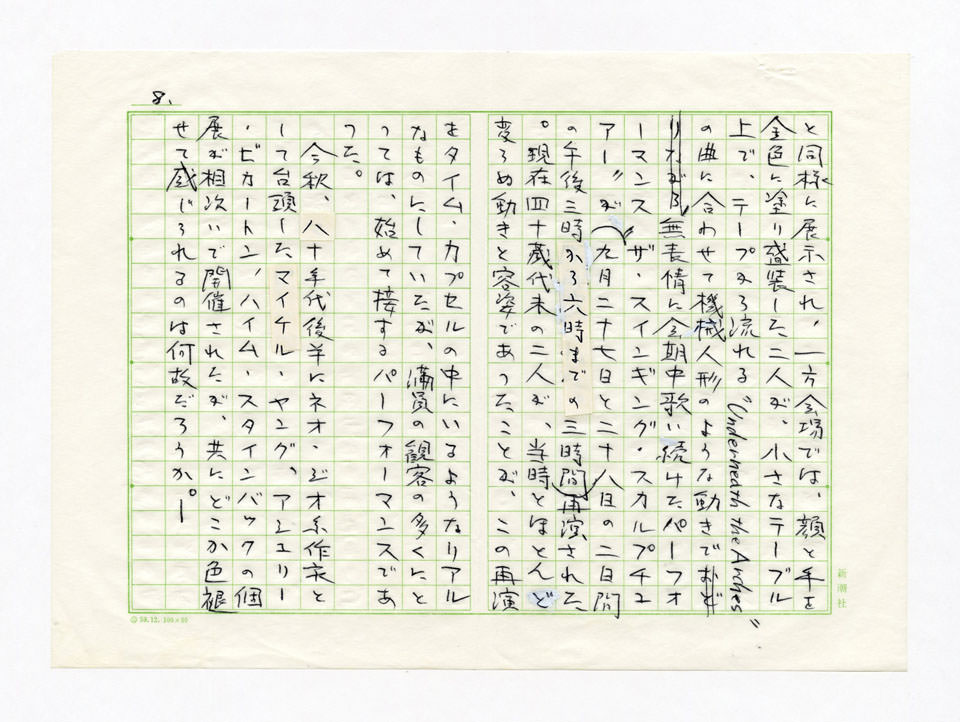 8.
と同様に展示され、一方会場では、顔と手を
金色に塗り盛装した二人が、小さなテーブル
上で、テープから流れる "Underneath the Arches"
の曲に合わせて機械人形のような動きで
無表情に会期中歌い続けたパーフォ
ーマンス "ザ・スインギング・スカルプチュ
アー" が (九月二十七日と二十八日の二日間
の午後三時から六時までの三時間) 再演された
。現在四十歳代末の二人が、当時とほとんど
変らぬ動きと容姿であったことが、この再演
をタイム・カプセルの中にいるようなリアル
なものにしていたが、満員の観客の多くにと
っては、始めて接するパーフォーマンスであ
った。
今秋、八十年代後半にネオ・ジオ系作家と
して台頭したマイケル・ヤング、アシュリー
・ビカートン、ハイム・スタインバックの個
展が相次いで開催されたが、共にどこか色褪
せて感じられるのは何故だろうか。ー
新潮社
59.12. 100×50